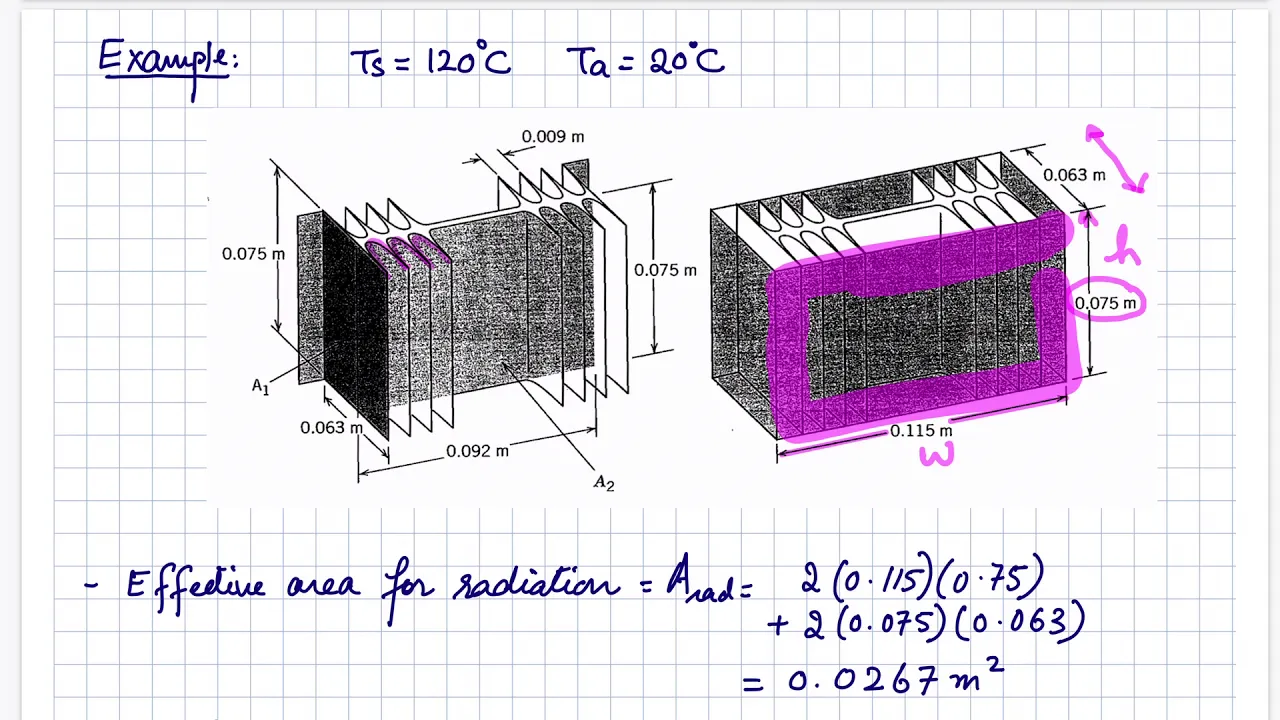 Example: Ts = 120°C Ta = 20°C
0.009 m
0.063 m
0.075 m
0.075 m
h
0.075 m
A1
0.063 m
0.092 m
A2
0.115 m
w
- Effective area for radiation = Arad = 2(0.115)(0.75)
+ 2(0.075)(0.063)
= 0.0267 m²